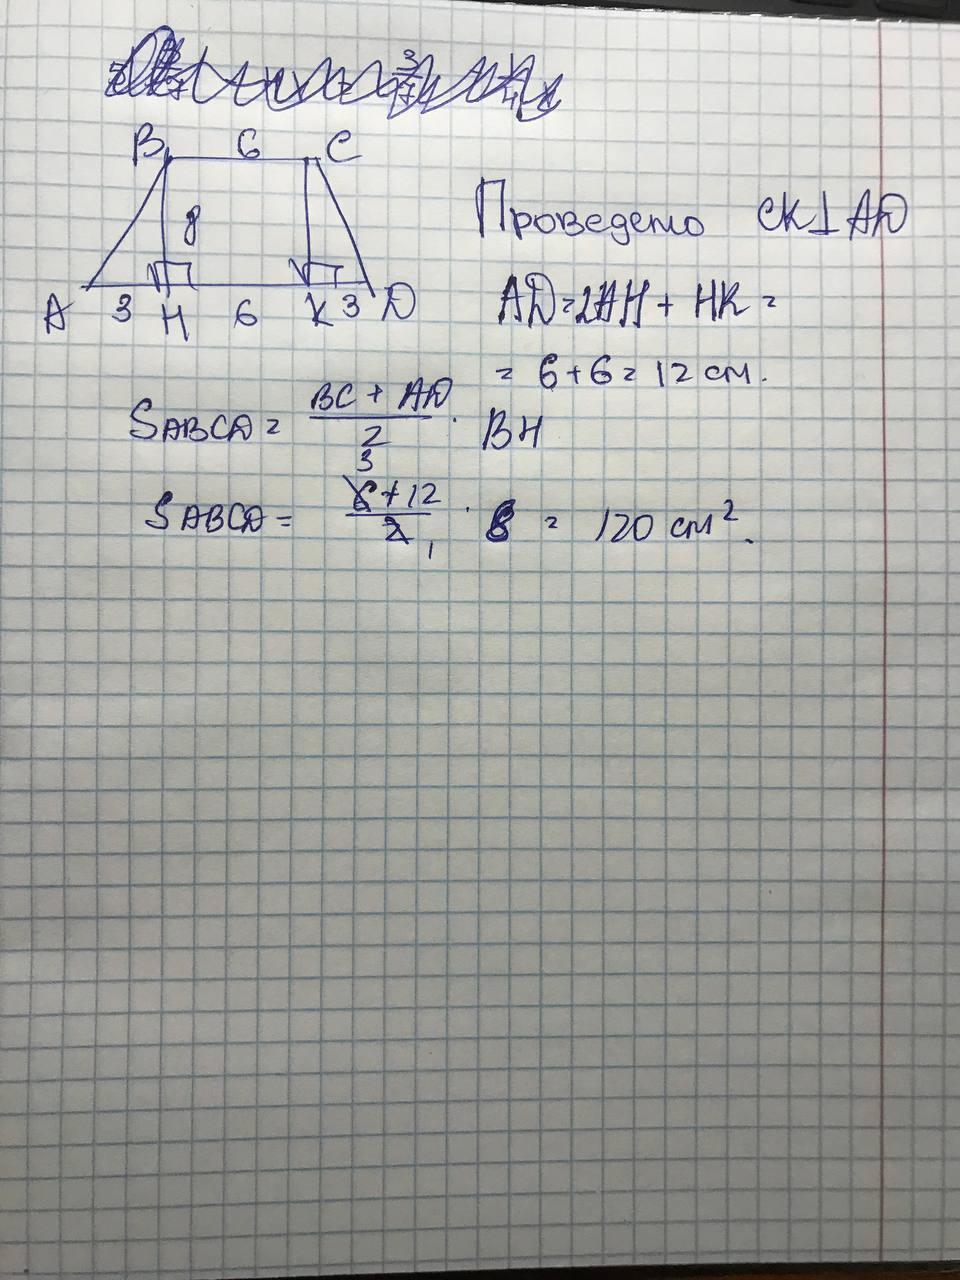 B 6 C
8
A 3 H 6 K 3 D
Проведемо CK⊥AD
AD=2AH + HK =
= 6+6=12 см.
SABCD = BC + AD / 2 · BH
3
SABCD = 6+12 / 2 · 8 = 120 см².
1